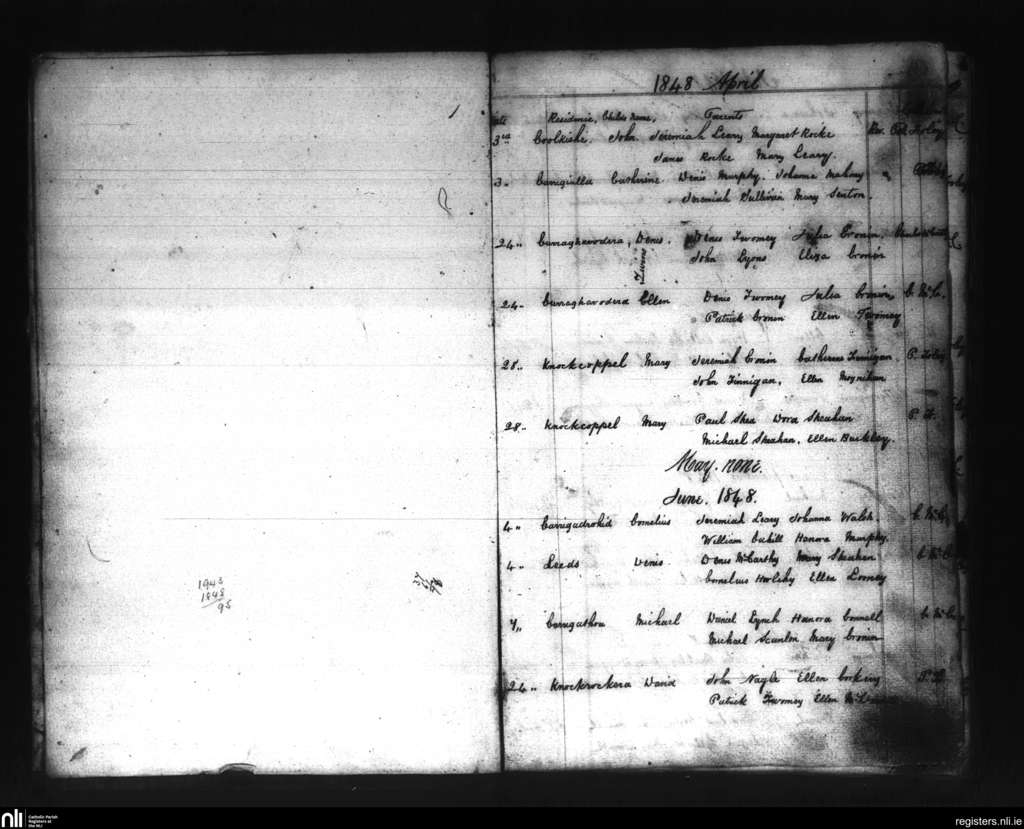 1943
1848
95
1
1848 April
Date Residence, Childs name, Parents
3rd Coolkishe. John Jeremiah Leary Margaret Rocke Rev. Pat. Foley
James Rocke Mary Leary.
3" Carrigiulla Catherine Denis Murphy. Johanna Mahony
Jeremiah Sullivan Mary Sexton.
24" Curraghavodera, Denis. Denis Twomey Julia Cronin,
Twins John Lyons Eliza Cronin
24" Curraghavodera Ellen Denis Twomey Julia Cronin C. McC.
Patrick Cronin Ellen Twomey
28" Knockcoppel Mary Jeremiah Cronin Catherine Finnigan. P. Foley
John Finnigan, Ellen Moynihan
28" Knockcoppel Mary Paul Shea Nora Sheahan P. F.
Michael Sheahan, Ellen Buckley.
May. none.
June. 1848.
4" Carrigadrohid Cornelius Jeremiah Leary Johanna Walsh. C. McC.
William Cahill Hanora Murphy.
4" Leeds Denis Denis McCarthy Mary Sheahan C. McC
Cornelius Herlihy Ellen Looney
7" Carrigathou Michael Daniel Lynch Hanora Connell C. McC
Michael Scanlon Mary Cronin
24" Knockrockera David John Nagle Ellen Corkery P. F.
Patrick Twomey Ellen
nli Catholic Parish
Registers at
the NLI
registers.nli.ie